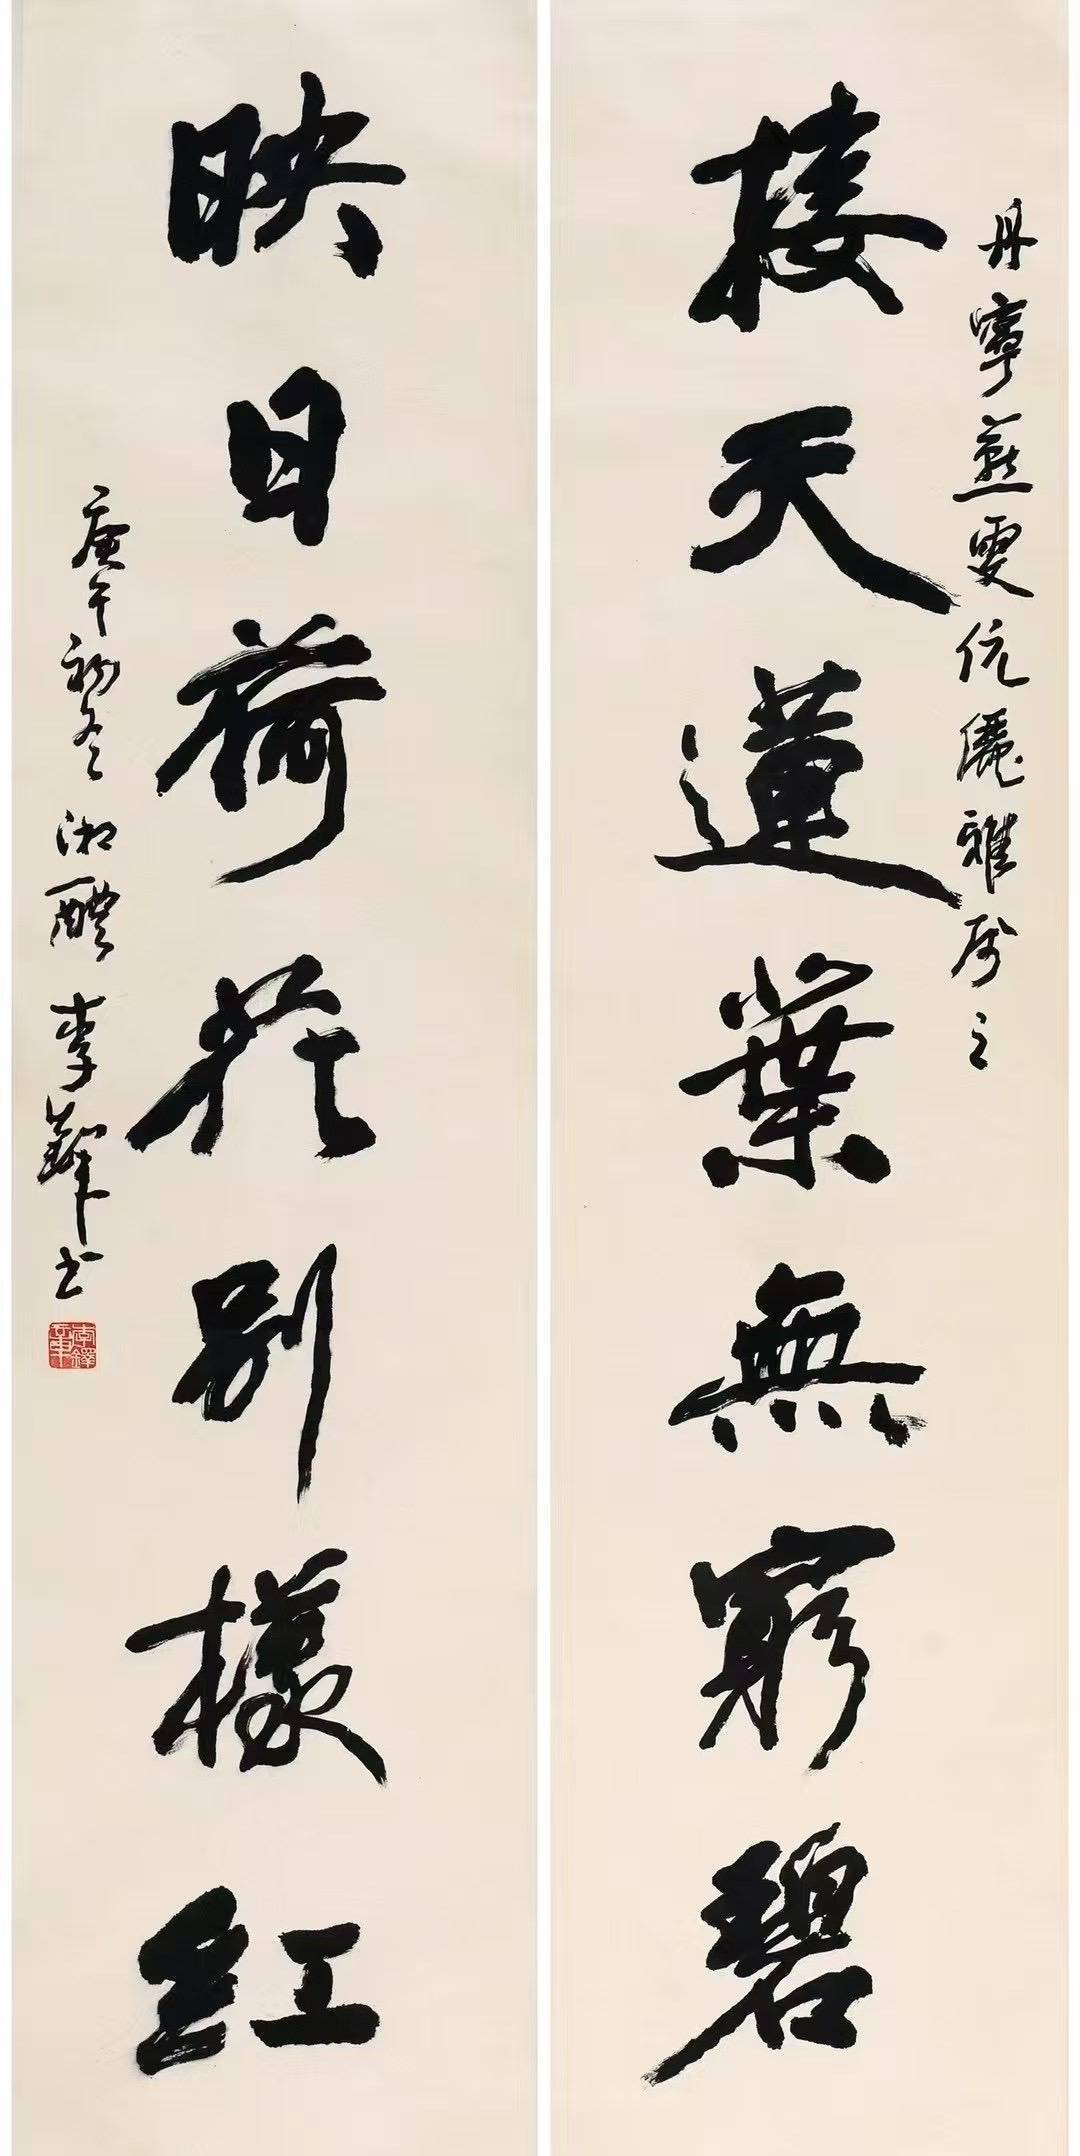 丹寧燕雯伉儷雅属之
接天蓮葉無窮碧
映日荷花别樣紅
庚午初冬湘醴李鐸书
李鐸